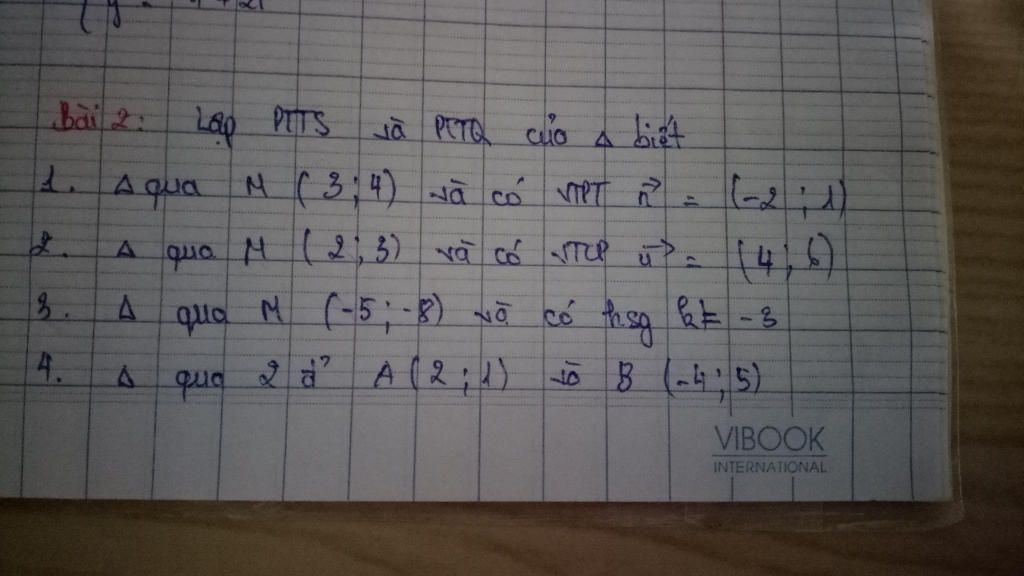 Bài 2: Lập PTTS và PTTQ của Δ biết
1. Δ qua M (3; 4) và có VTPT n→ = (-2; 1)
2. Δ qua M (2; 3) và có VTCP u→ = (4; 6)
3. Δ qua M (-5; -8) và có hsg k = -3
4. Δ qua 2 đ' A (2; 1) và B (-4; 5)
VIBOOK
INTERNATIONAL